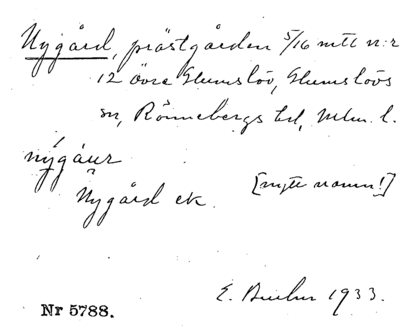 Nygård, prästgården 5/16 mtl n:r
12 övre Glumslöv, Glumslövs
sn, Rönnebergs hd, Mlm. l.
nýgåur
Nygård ek.
[nytt namn!]
E. 1933.
Nr 5788.